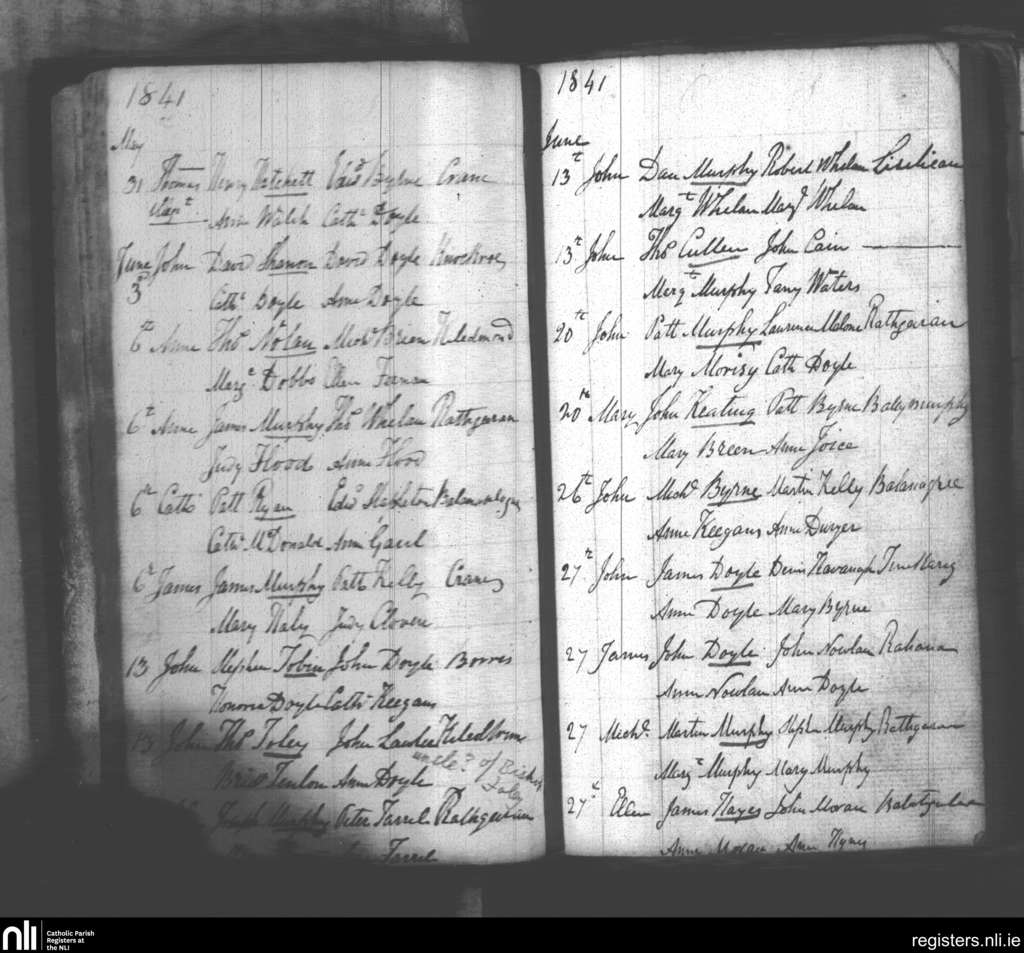 1841
May
31 Thomas Henry Hatchett Edwd Byrne Crane
Anne Walsh Cathe Doyle
June John David Shannon David Doyle Knockroe
3d Cathe Doyle Anne Doyle
6th Anne Thos Nolan Michl Brien Kiledmond
Margt Hobbs Ellen
6th Anne James Murphy Thos Whelan Rathgeran
Judy Flood Anne Flood
6th Cathe Patt Ryan Edwd Stapleton
Cathe McDonald Anne
6th James James Murphy Patt Kelly Crane
Mary Haly Judy
13 John Stephen Tobin John Doyle Borris
Honora Doyle Cathe Keegans
13 John Thos Foley John
uncle? of Bishop
Foley
Bridt Anne Doyle
Joseph Murphy Peter Farrel
Farrel
1841
June
13th John Dan Murphy Robert Whelan
Margt Whelan Mary Whelan
13th John Thos Cullen John Cain
Margt Murphy Fany Waters
20th John Patt Murphy Laurence Malone Rathgeran
Mary Morisy Cath Doyle
20th Mary John Keating Patt Byrne Ballymurphy
Mary Breen Anne Joice
26th John Michl Byrne Martin Kelly
Anne Keegans Anne Dwyer
27th John James Doyle Denis Kavanagh
Anne Doyle Mary Byrne
27 James John Doyle John Nowlan Rahana
Anne Nowlan Anne Doyle
27 Michl Martin Murphy Stephn Murphy Rathgeran
Margt Murphy Mary Murphy
27th Ellen James Hayes John Moran
Anne Moran Anne
nli Catholic Parish
Registers at
the NLI
registers.nli.ie